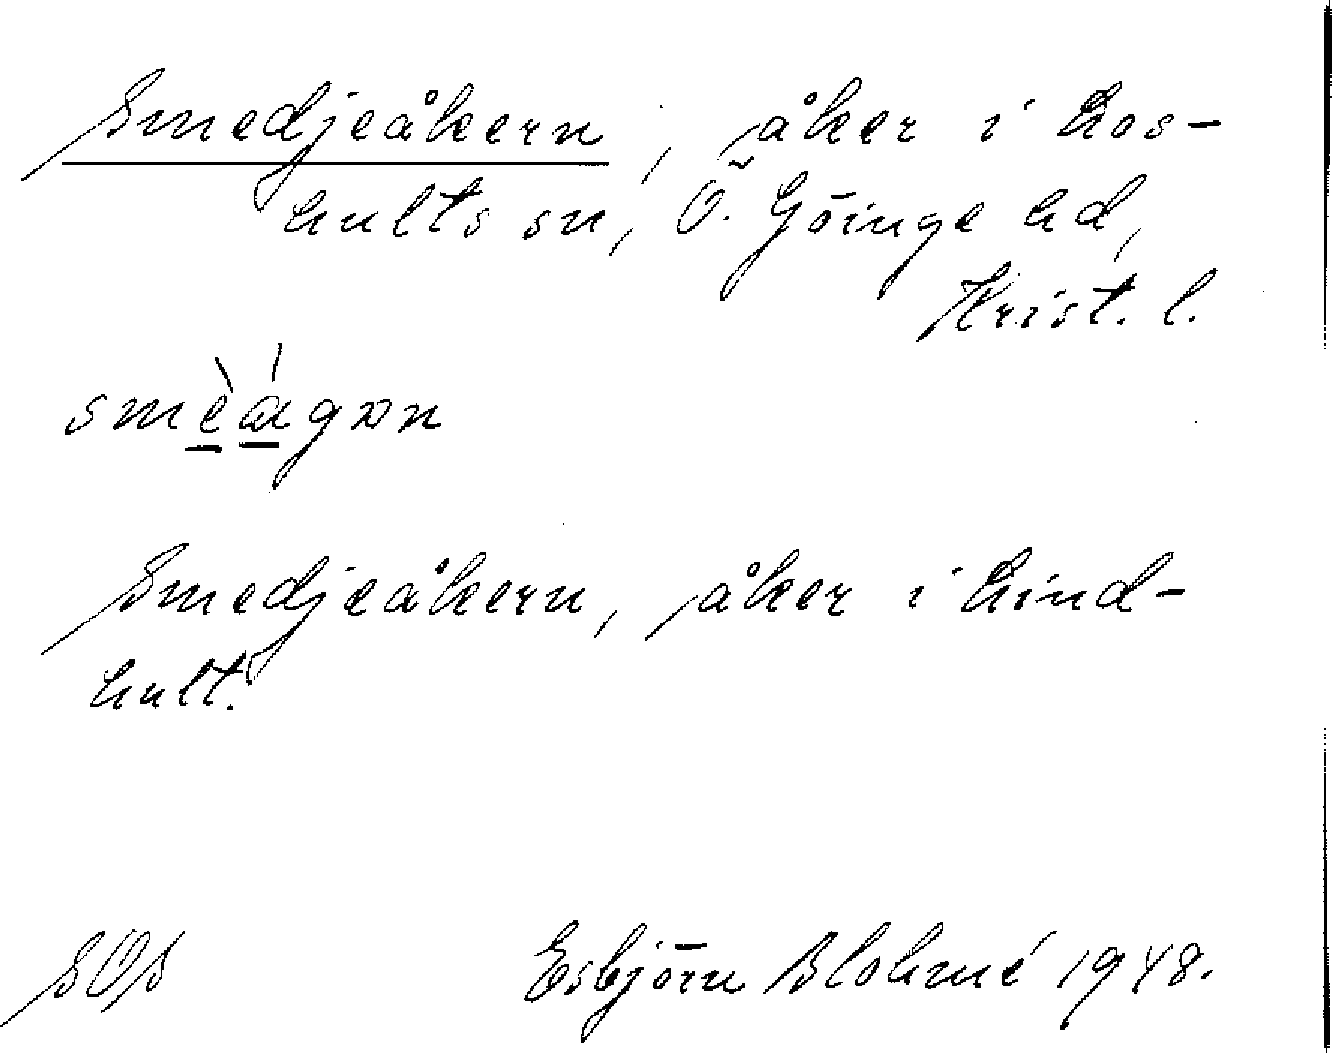 Smedjeåkern, åker i Los-
hults sn, Ö. Göinge hd,
Krist. l.
smèágɷn
Smedjeåkern, åker i Lind-
hult.
SOS Esbjörn Blohmé 1948.